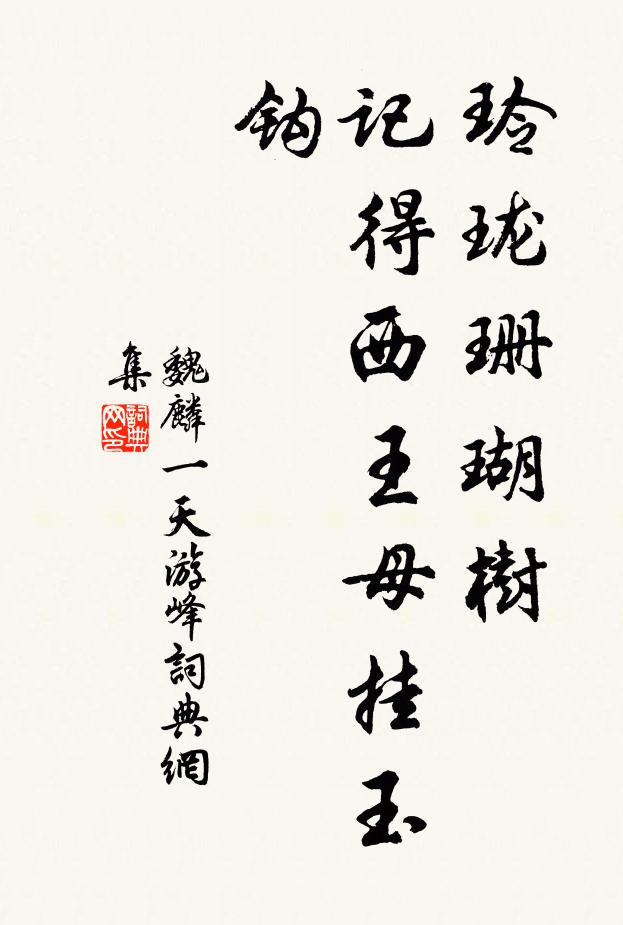 玲珑珊瑚樹
记得西王母挂玉
鈎
魏麟一天游峰詞典網
集
詞典
网印